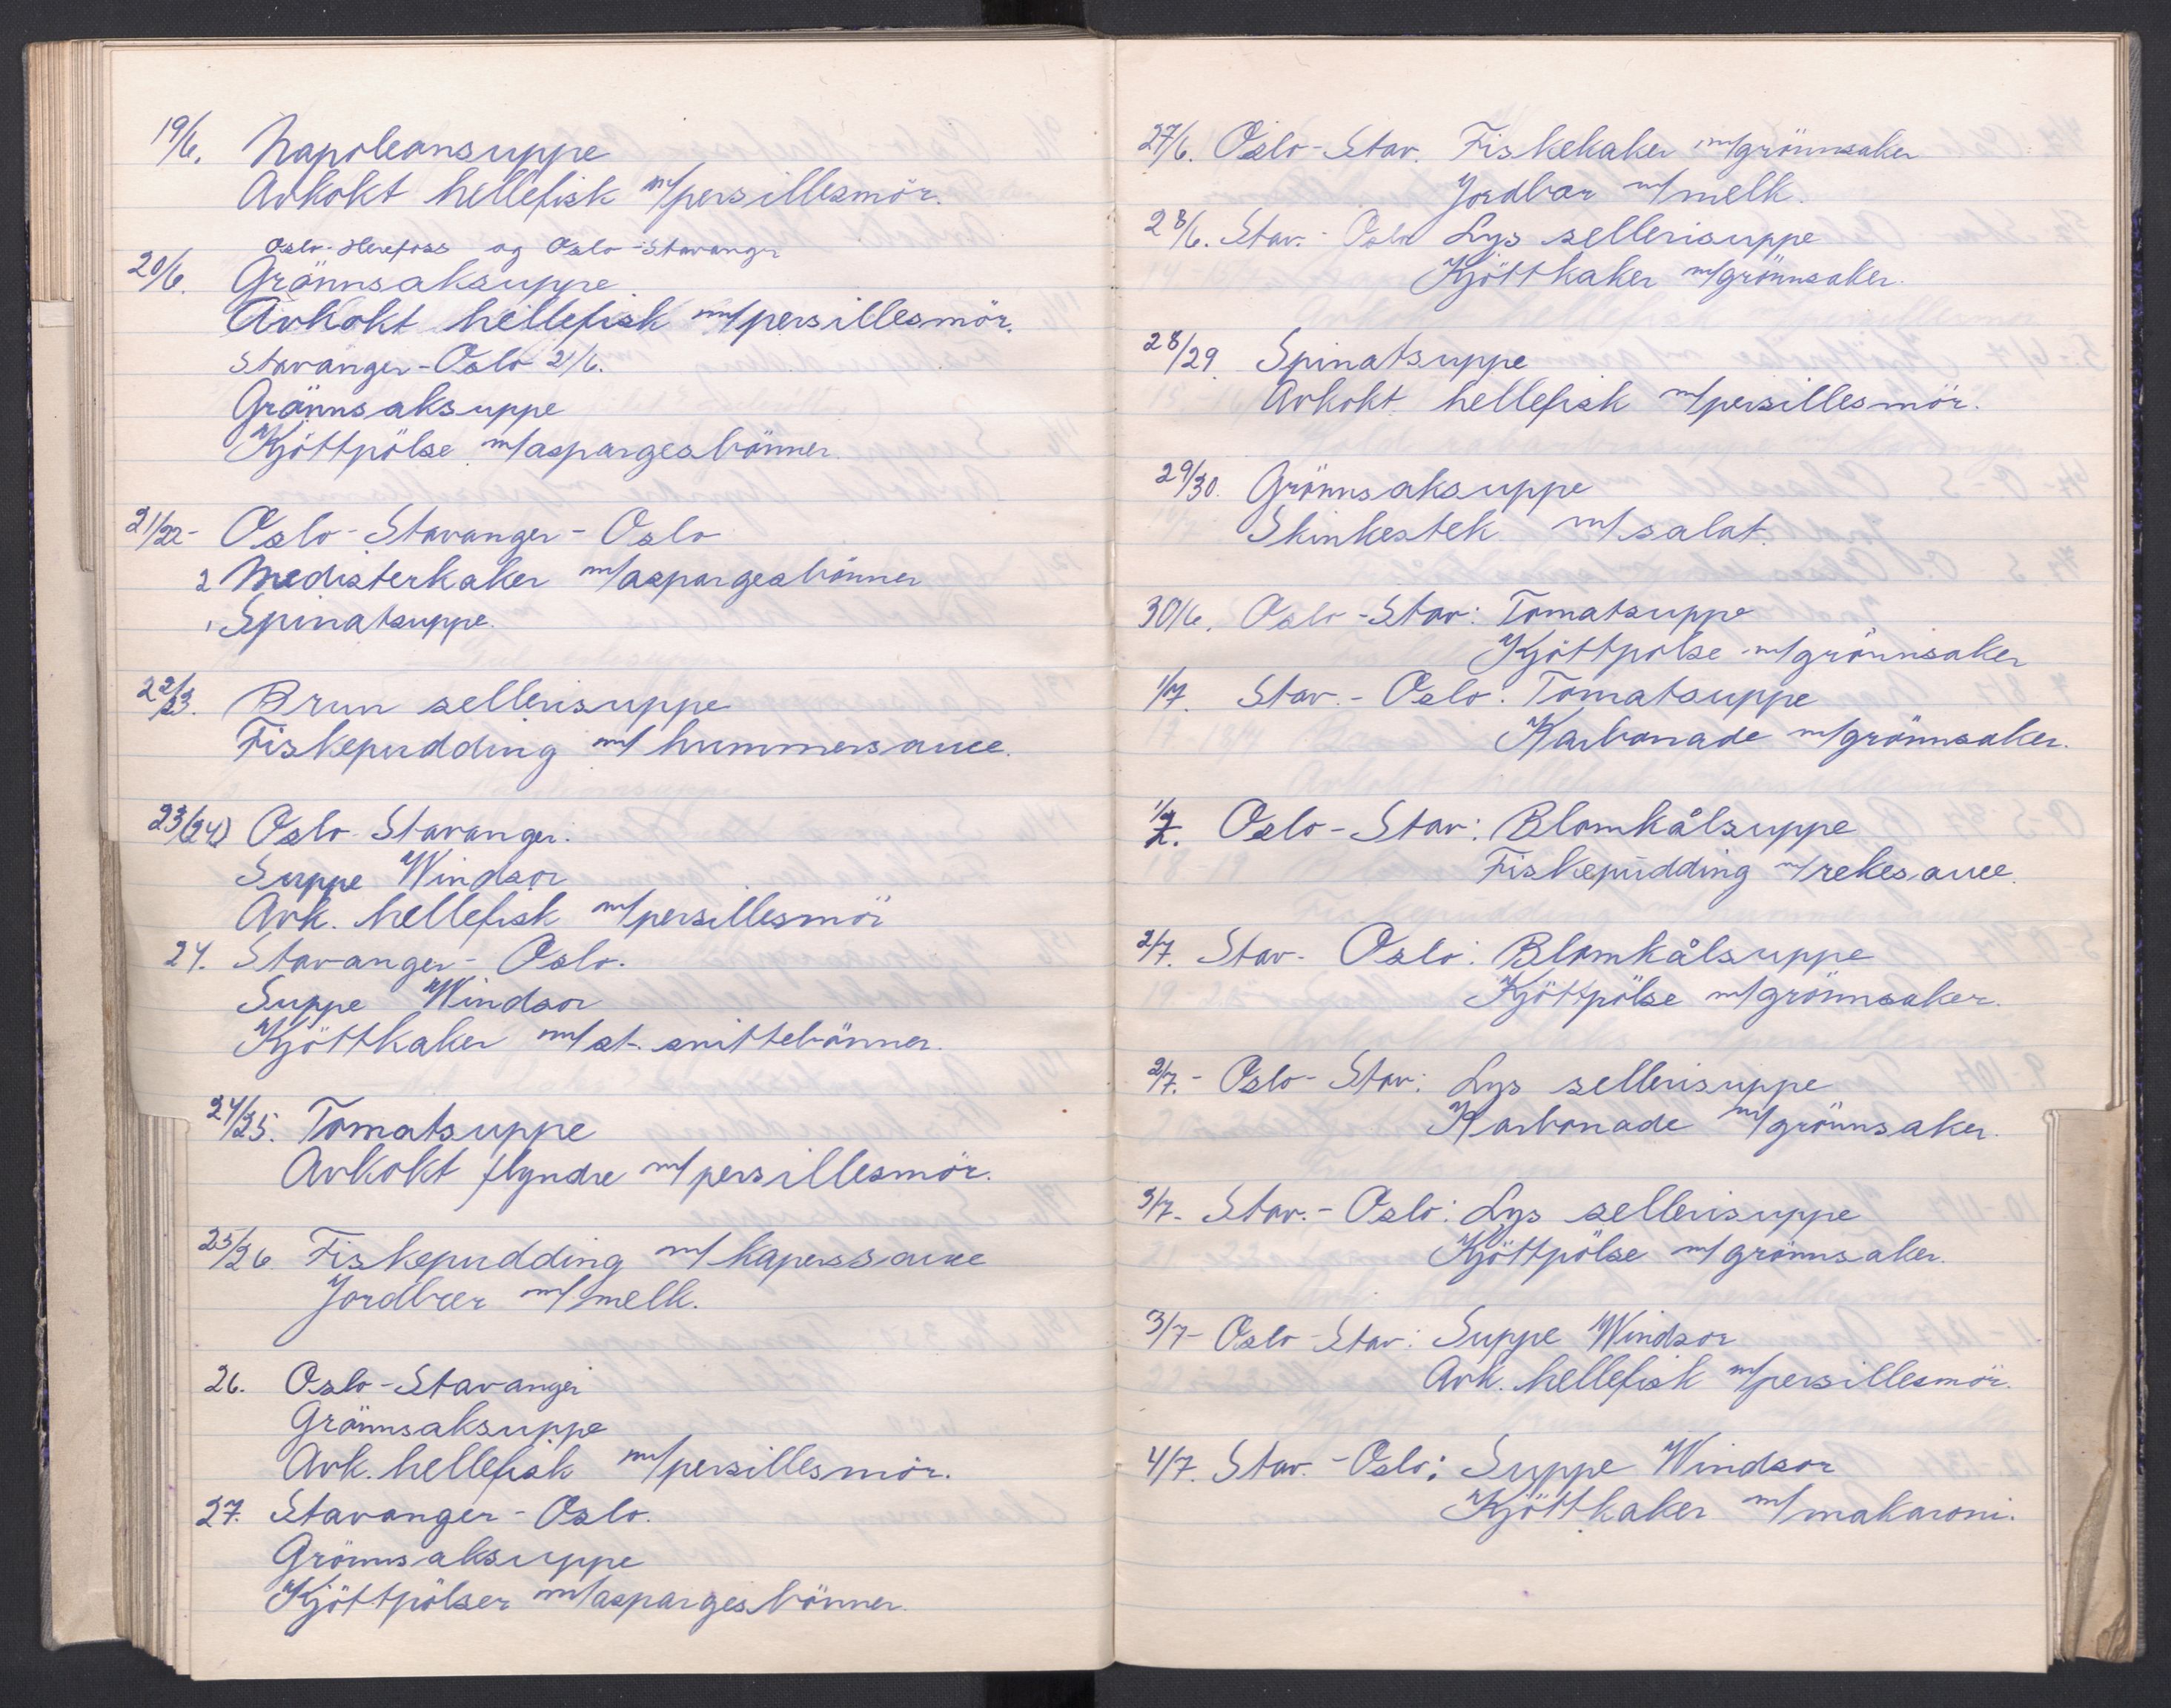 19/6. Napoleonsuppe
Avkokt hellefisk m/persillesmör.
Oslo-Herefoss og Oslo-Stavanger
20/6. Grönnsaksuppe
Avkokt hellefisk m/persillesmör.
Stavanger-Oslo 21/6.
Grönnsaksuppe
Kjöttpölse m/aspargesbönner
21/22- Oslo-Stavanger-Oslo
2 Medisterkaker m/aspargesbönner
1 Spinatsuppe.
22/23. Brun sellerisuppe
Fiskepudding m/hummersauce.
23/(24) Oslo-Stavanger.
Suppe Windsor
Avk. hellefisk m/persillesmör
24. Stavanger-Oslo.
Suppe Windsor
Kjöttkaker m/st. snittebönner.
24/25. Tomatsuppe
Avkokt flyndre m/persillesmör.
25/26 Fiskepudding m/kaperssauce
Jordbær m/melk.
26. Oslo-Stavanger
Grönnsaksuppe
Avk. hellefisk m/persillesmör.
27. Stavanger-Oslo.
Grönnsaksuppe
Kjöttpölser m/aspargesbönner.
27/6. Oslo-Stav. Fiskekaker m/grönnsaker
Jordbær m/melk.
28/6. Stav.-Oslo Lys sellerisuppe
Kjöttkaker m/grönnsaker.
28/29 Spinatsuppe
Avkokt hellefisk m/persillesmör.
29/30. Grönnsaksuppe
Skinkestek m/salat.
30/6. Oslo-Stav: Tomatsuppe
Kjöttpölse m/grönnsaker
1/7. Stav.-Oslo: Tomatsuppe
Karbonade m/grönnsaker.
1/7. Oslo-Stav: Blomkålsuppe
Fiskepudding m/rekesauce.
2/7. Stav-Oslo: Blomkålsuppe
Kjöttpölse m/grönnsaker.
2/7.- Oslo-Stav: Lys sellerisuppe
Karbonade m/grönnsaker.
3/7- Stav.-Oslo: Lys sellerisuppe
Kjöttpölse m/grönnsaker.
3/7- Oslo-Stav: Suppe Windsor
Avk. hellefisk m/persillesmör.
4/7. Stav.-Oslo: Suppe Windsor
Kjöttkaker m/makaroni.